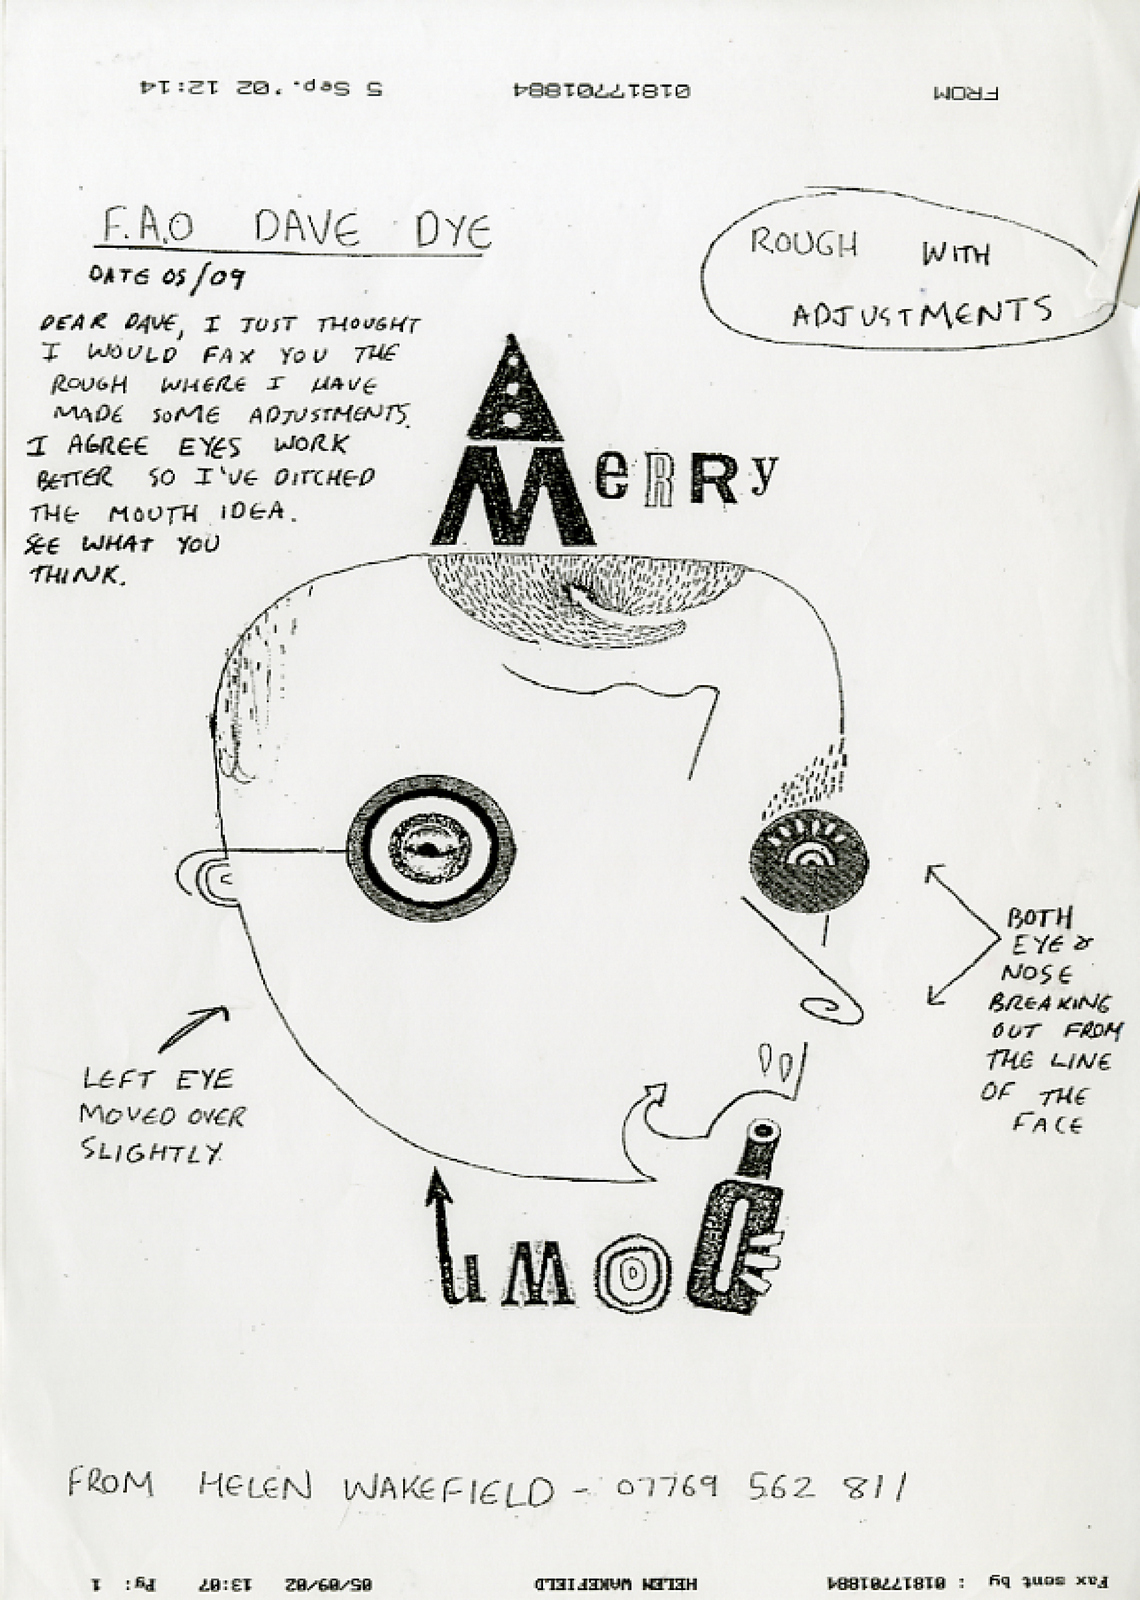 FROM 01817701884 5 Sep. '02 12:14
F.A.O DAVE DYE
DATE 05/09
ROUGH WITH
ADJUSTMENTS
DEAR DAVE, I JUST THOUGHT
I WOULD FAX YOU THE
ROUGH WHERE I HAVE
MADE SOME ADJUSTMENTS.
I AGREE EYES WORK
BETTER SO I'VE DITCHED
THE MOUTH IDEA.
SEE WHAT YOU
THINK.
MeRRy
BOTH
EYE &
NOSE
BREAKING
OUT FROM
THE LINE
OF THE
FACE
LEFT EYE
MOVED OVER
SLIGHTLY
FROM HELEN WAKEFIELD - 07769 562 811
Fax sent by : 01817701884 HELEN WAKEFIELD 05/09/02 13:07 Pg: 1